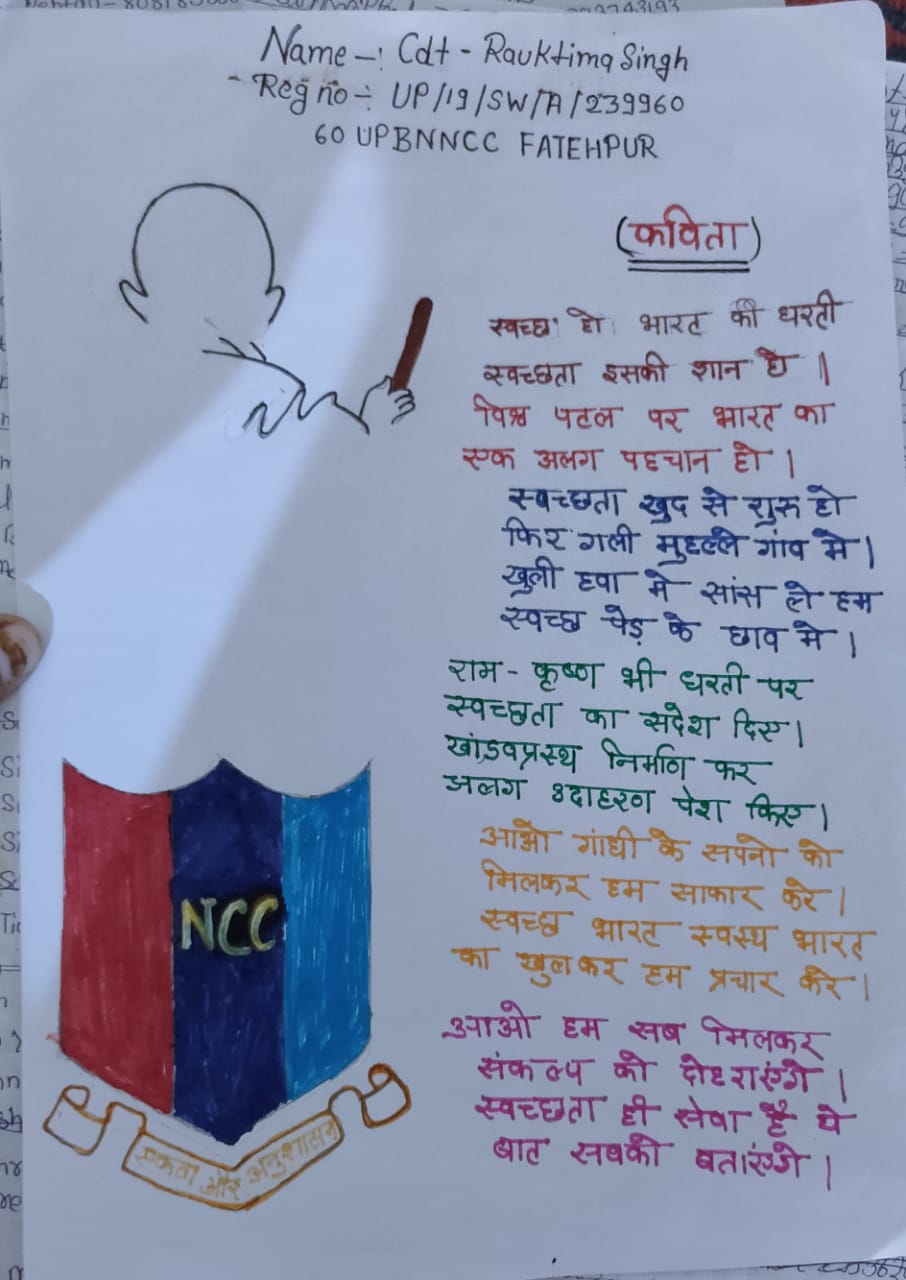 Name -: Cdt - Rauktima Singh
Reg no -: UP/19/SW/A/239960
60 UPBNNCC FATEHPUR
(कविता)
स्वच्छ हो भारत की धरती
स्वच्छता इसकी शान है |
विश्व पटल पर भारत का
एक अलग पहचान हो |
स्वच्छता खुद से शुरू हो
फिर गली मुहल्ले गांव मे |
खुली हवा मे सांस ले हम
स्वच्छ पेड़ के छाव मे |
राम - कृष्ण भी धरती पर
स्वच्छता का संदेश दिए |
खांडवप्रस्थ निर्माण कर
अलग उदाहरण पेश किए |
आओ गांधी के सपनो को
मिलकर हम साकार करे |
स्वच्छ भारत स्वस्थ भारत
का खुलकर हम प्रचार करे |
आओ हम सब मिलकर
संकल्प को दोहराएंगे |
स्वच्छता ही सेवा है ये
बात सबको बताएंगे |
NCC
एकता और अनुशासन